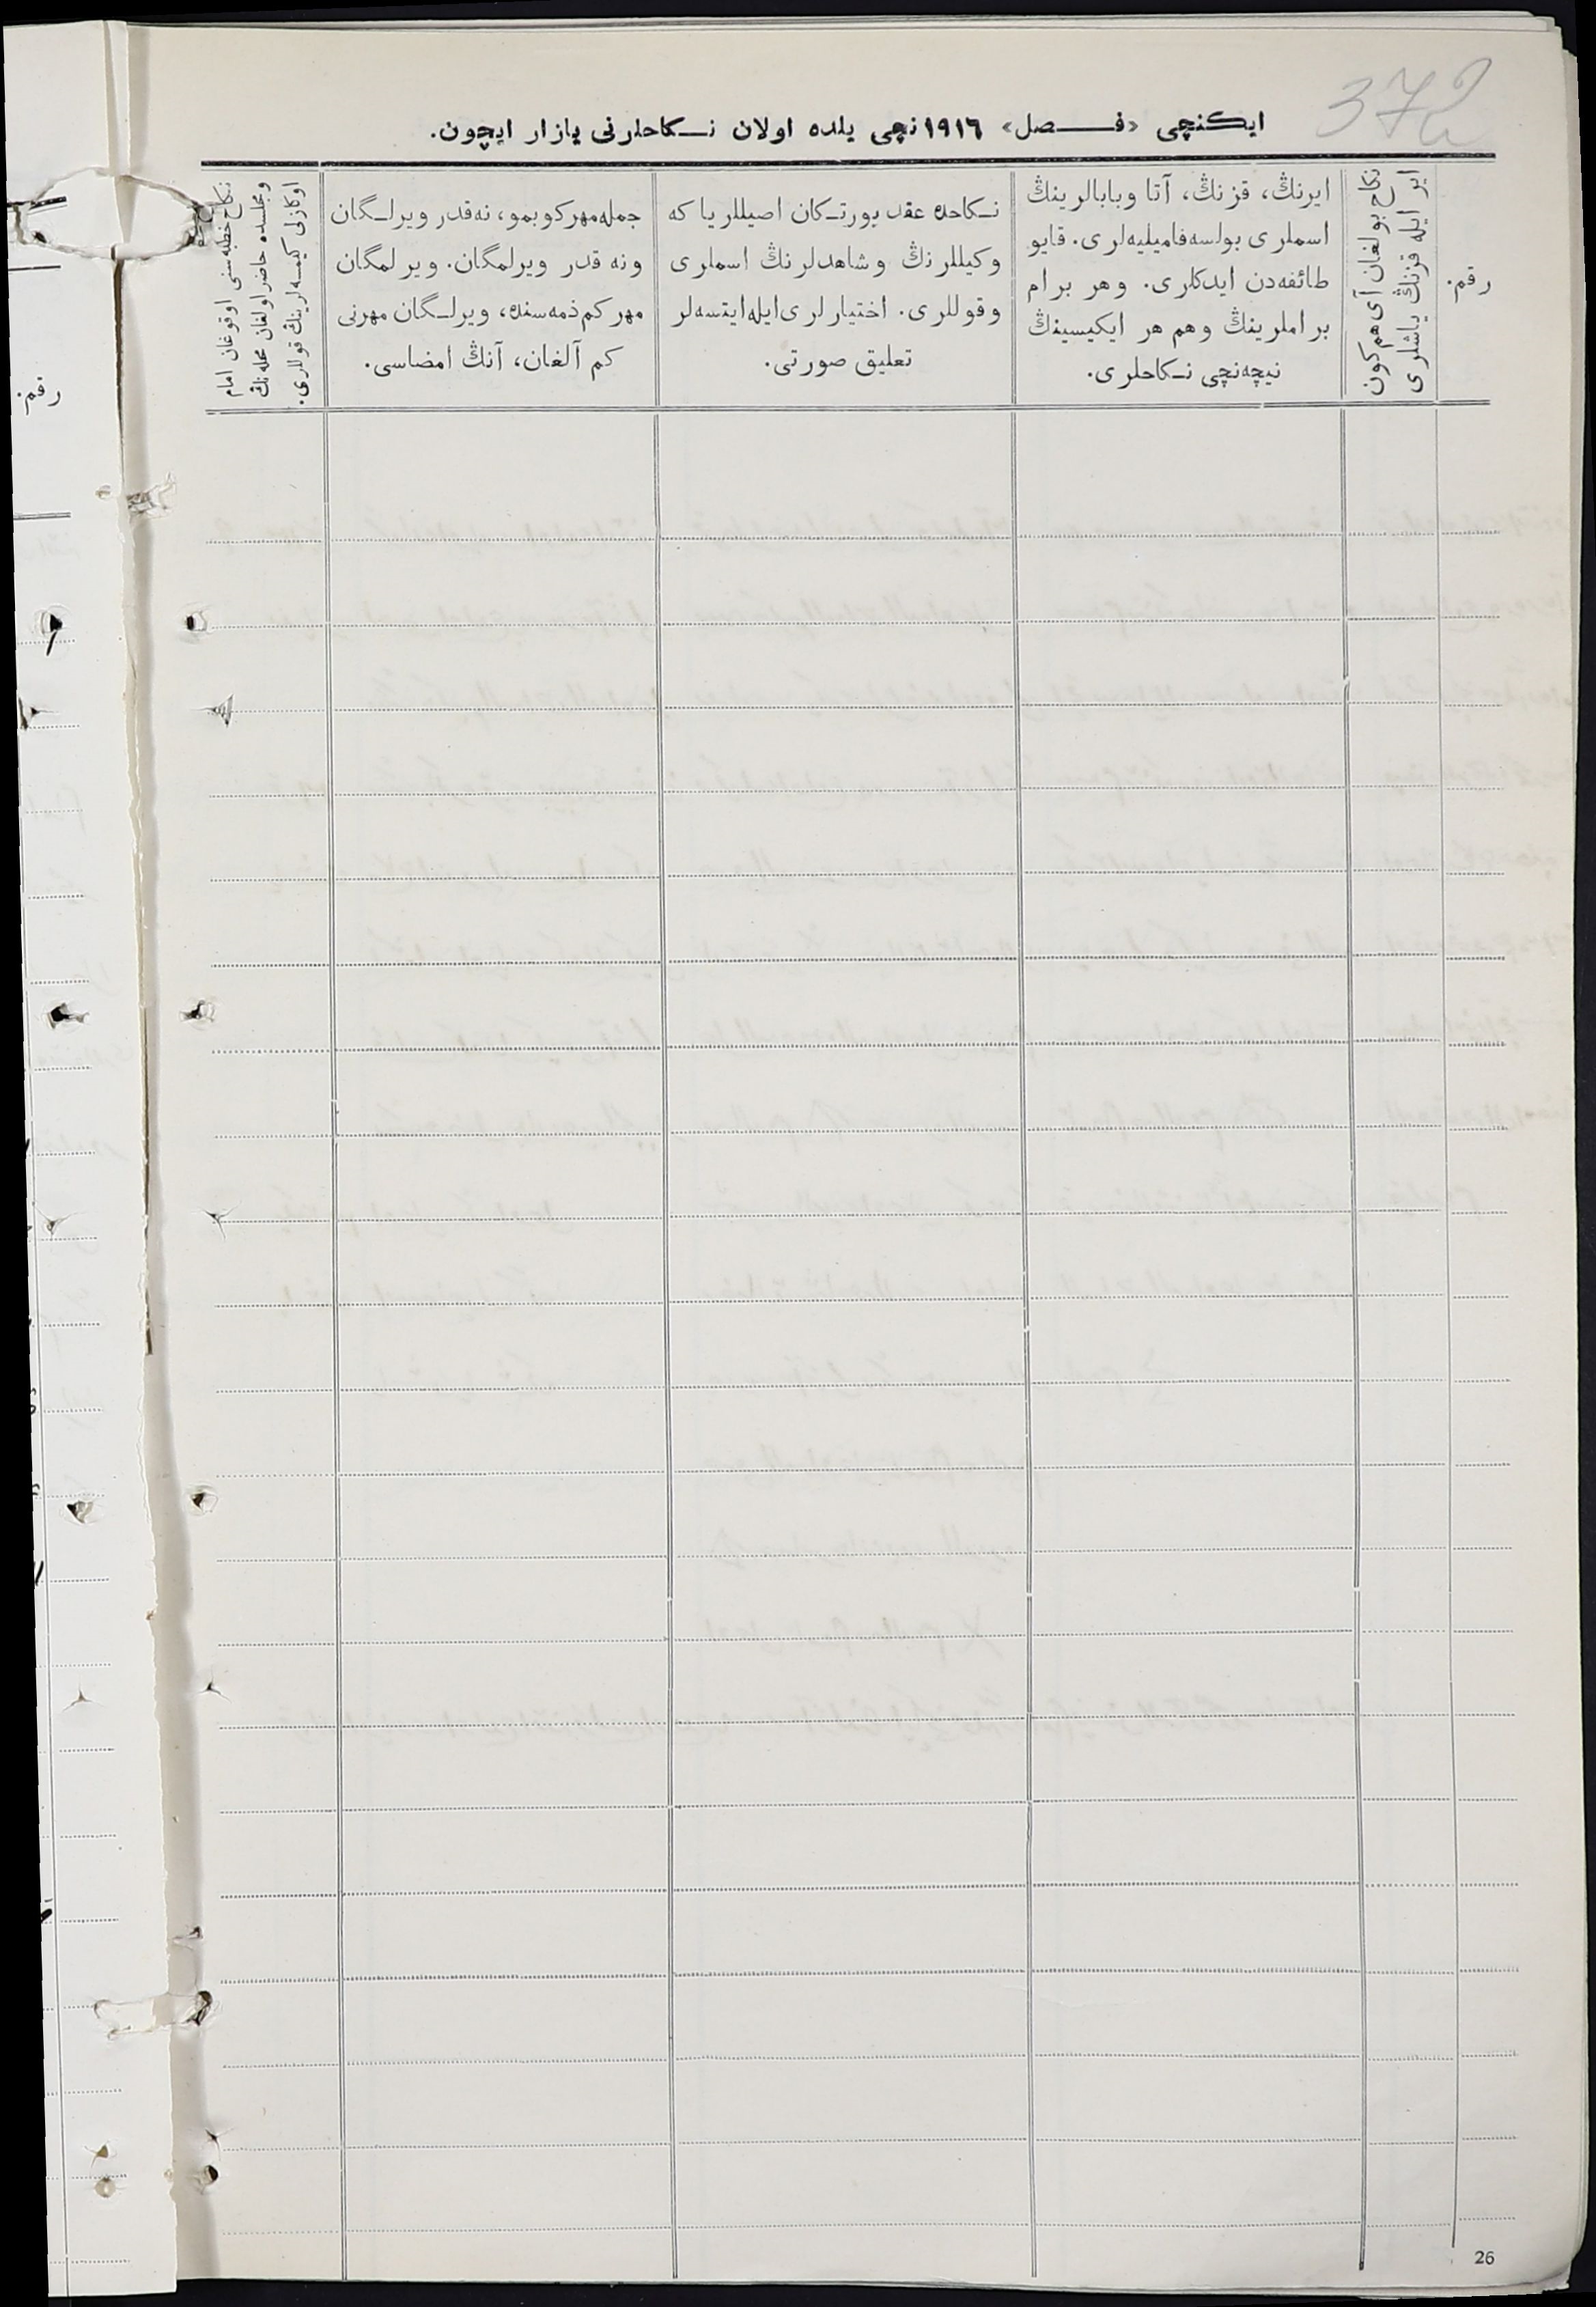 372
ایكنچی «فــصل» ١٩١٦نچی یلده اولان نــكاحلرنی یازار ایچون.
رقم.
نكاح بولغان آی هم كون
ایر ایله قزنڭ یاشلری
ایرنڭ، قزنڭ، آتا وبابالرینڭ
اسملری بولسه فامیلیه‌لری. قایو
طائفه‌دن ایدكلری. وهر برام
براملرینڭ وهم هر ایكیسینڭ
نیچه‌نچی نــكاحلری.
نــكاحده عقد یورتــكان اصیللر یا كه
وكیللرنڭ وشاهدلرنڭ اسملری
وقوللری. اختیارلری ایله ایتسه‌لر
تعلیق صورتی.
جمله مهر كوبمو، نه‌قدر ویرلــگان
ونه قدر ویرلمگان. ویرلمگان
مهر كم ذمه‌سنده، ویرلــگان مهرنی
كم آلغان، آنڭ امضاسی.
نكاح خطبه‌سنی اوقوغان امام
ومجلسده حاضر اولغان محله‌نڭ
اوكازلی كیمسه‌لرینڭ قوللری.
رقم.
26